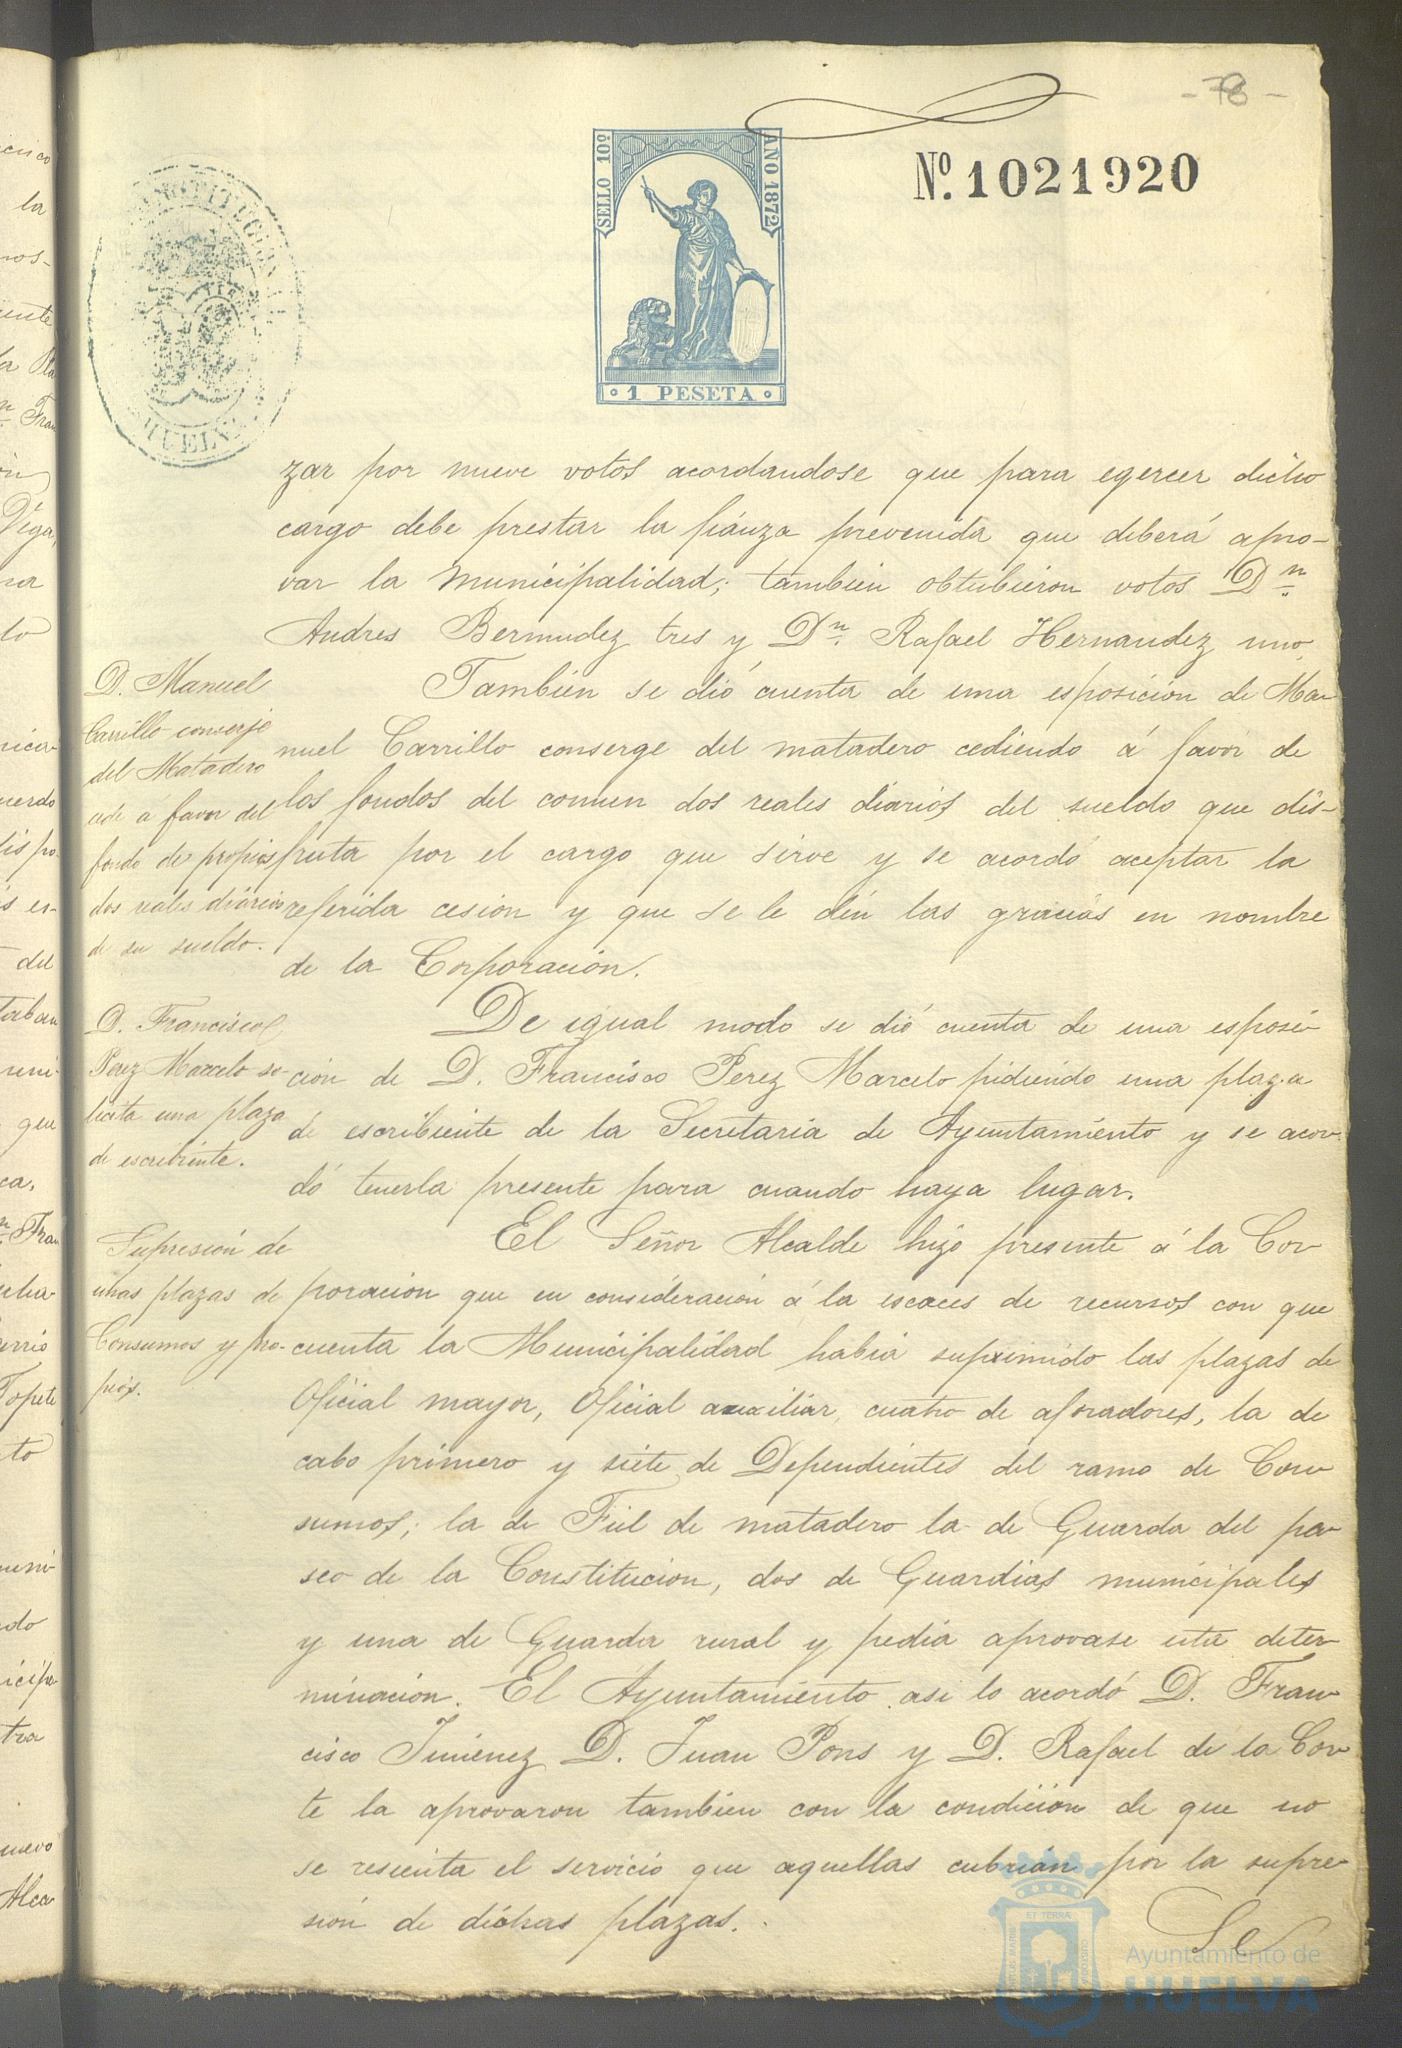 - 78 -
SELLO 10º
AÑO 1872
1 PESETA
Nº. 1021920
HUELVA
zar por nueve votos acordandose que para egercer dicho
cargo debe prestar la fiánza prevenida que deberá apro-
var la Municipalidad; tambien obtubieron votos Dn.
Andres Bermudez tres y Dn. Rafael Hernandez uno.
D. Manuel
Carrillo conserje
del Matadero
cede á favor del
fondo de propios
dos reales diários
de su sueldo.
Tambien se dió cuenta de una esposicion de Ma-
nuel Carrillo conserge del matadero cediendo á favor de
los fondos del comun dos reales diarios del sueldo que dis-
fruta por el cargo que sirve y se acordó aceptar la
referida cesion y que se le dén las gracias en nombre
de la Corporacion.
D. Francisco
Perez Marcelo so-
licita una plaza
de escribiente.
De igual modo se dió cuenta de una esposi-
cion de D. Francisco Perez Marcelo pidiendo una plaza
de escribiente de la Secretaria de Ayuntamiento y se acor-
dó tenerla presente para cuando haya lugar.
Supresión de
unas plazas de
Consumos y pro-
pios.
El Señor Alcalde hizo presente á la Cor-
poracion que en consideracion á la escaces de recursos con que
cuenta la Municipalidad habia suprimido las plazas de
Oficial mayor, Oficial auxiliar, cuatro de aforadores, la de
cabo primero y siete de Dependientes del ramo de Con-
sumos; la de Fiel de matadero la de Guarda del pa-
seo de la Constitucion, dos de Guardias municipales
y una de Guarda rural y pedia aprovase esta deter-
minacion. El Ayuntamiento asi lo acordó D. Fran-
cisco Jimenez D. Juan Pons y D. Rafael de la Cor-
te la aprovaron tambien con la condicion de que no
se resienta el servicio que aquellas cubrian por la supre-
sion de dichas plazas.
Se
Ayuntamiento de
HUELVA